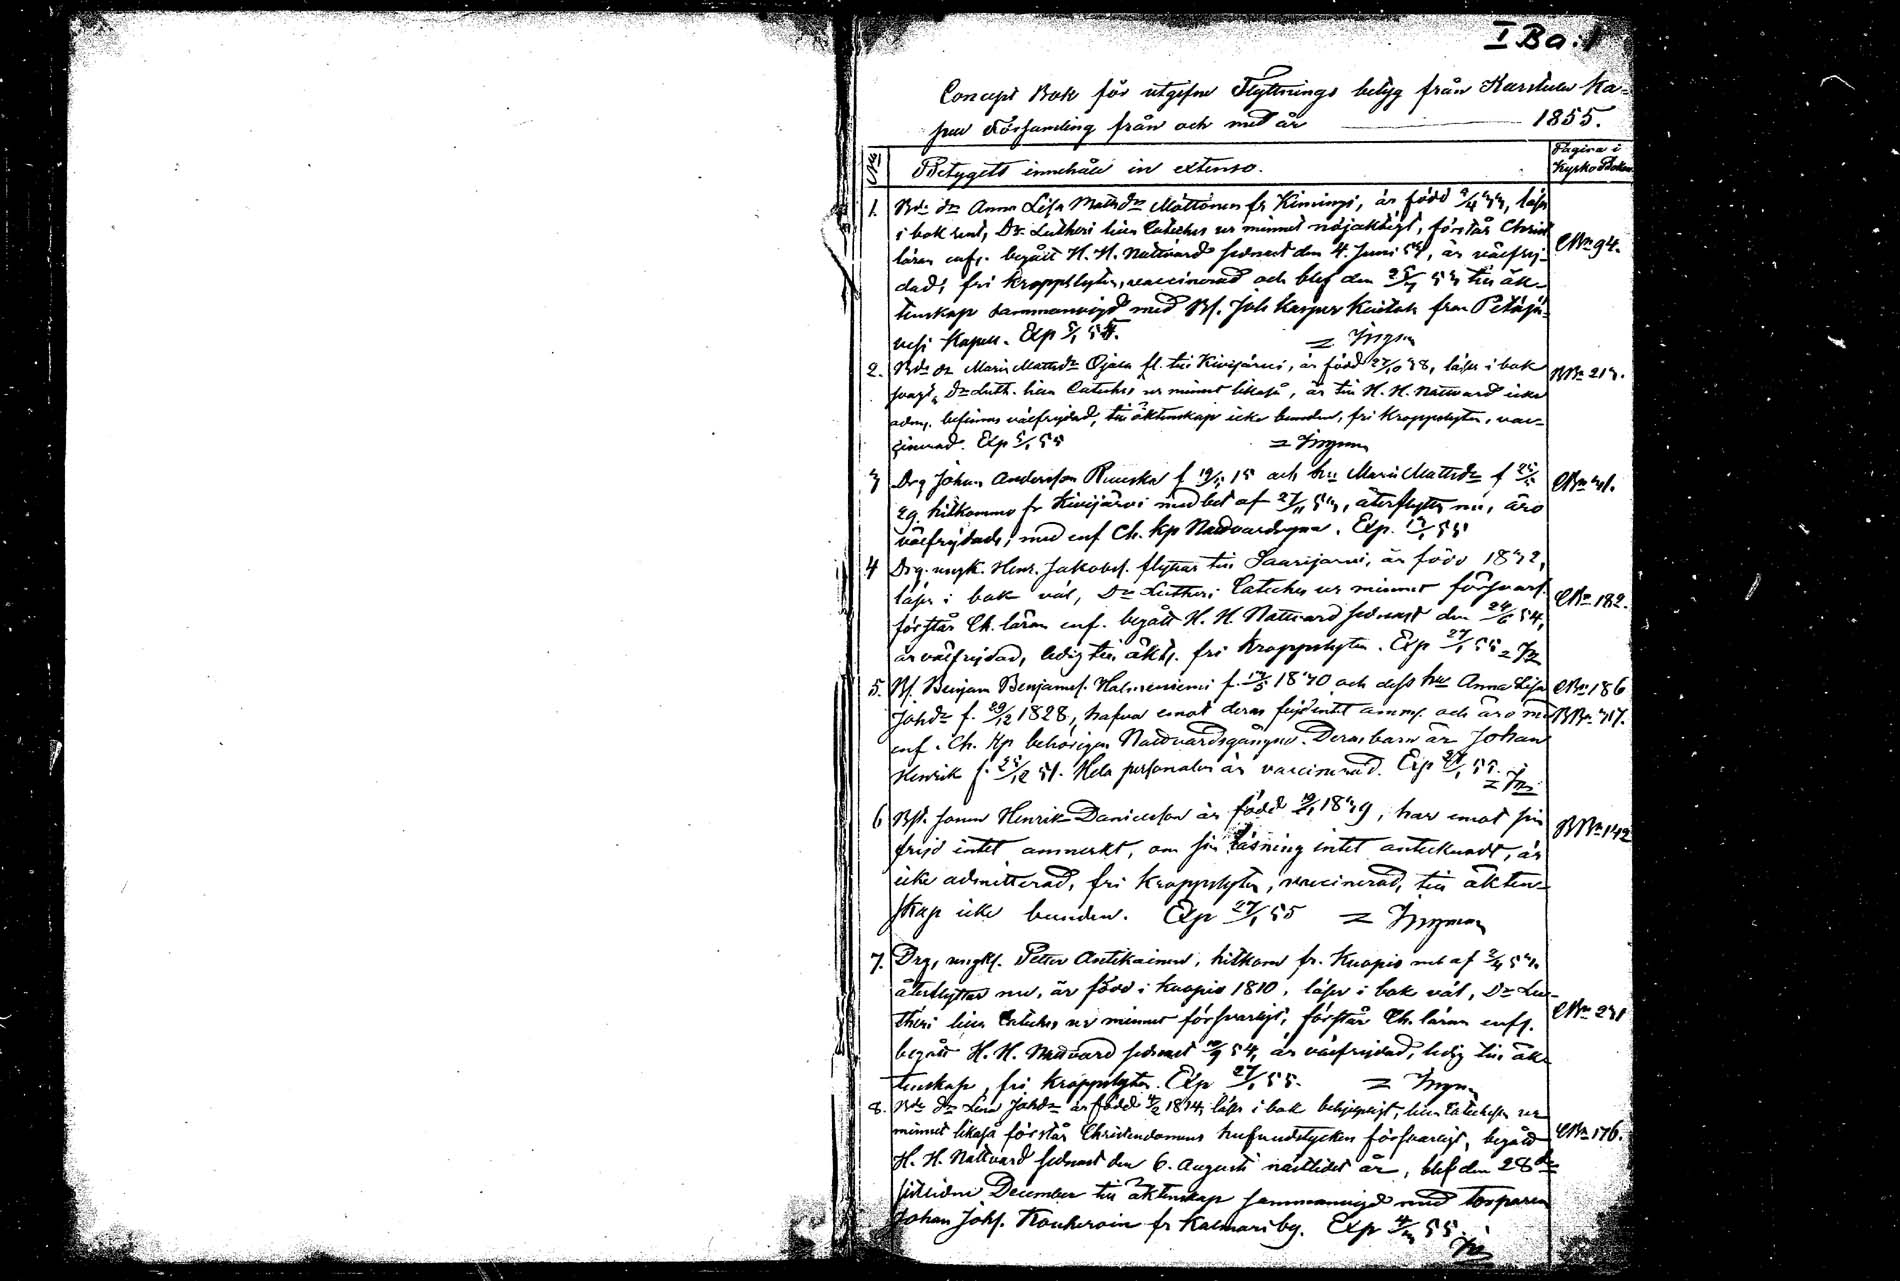 I Ba:1
Concept Bok för utgifne Flyttnings betyg från Karstula Ka-
pell Församling från och med år 1855.
No
Betygets innehåll in extenso.
Pagina i
Kyrko Boken
1. Bdr dr Anna Lisa Mattsdr Möttönen fr Kimingi, är född läser
i bok rent, Dr Lutheri lilla Cateches ur minnet nöjaktigt, förstår Christ
läran enf. begått H. H. Nattvard sednast den 4. Juni 54, är välfrej-
CB 94.
dad, fri kroppslyten, vaccinerad och blef den till äk-
tenskap sammanvigd med Bs. Joh Kasper från Petäjä-
vesi Kapell. Exp 5/1 55.
Ingman
2. Bdr dr Maria Mattsdr Ojala fl. till Kivijärvi, är född 27/10 38, läser i bok
BB 213.
svagt, Dr Luth. lilla Cateches ur minnet likaså, är till H. H. Nattvard icke
adm. befinnes välfrejdad, till äktenskap icke bunden, fri kroppslyten, vac-
cinerad. Exp 5/1 55
Ingman
3 Drg Johan Andersson f 19/ 15 och hu Maria Mattsdr f 25/
29 hitkommo fr Kivijärvi med bet af 27/11 53, återflytta nu, äro
välfrejdade, med enf Ch. kp Nattvardsggna. Exp. 55
4 Drg. ungk. Henr. Jakobss. flyttar till Saarijärvi, är född 1832,
läser i bok väl, Dr Lutheri Cateches ur minnet försvarl.
CB 182.
förstår Ch. läran enf. begått H. H. Nattvard sednast den 24/6 54,
är välfrejdad, ledig till äkts. fri kroppslyten. Exp 27/1 55
5. Bs. Benjam Benjamss. f. 1830 och dess hu Anna Lisa
CB 186
Johdr f. 29/12 1828, hafva emot deras frejd intet anm. och äro med
BB 317.
enf. Ch. Kp behörigen Nattvardsgångne. Deras barn är Johan
Henrik f. 25/12 51. Hela personalen är vaccinerad. Exp 27/1 55.
6 Bs. sonen Henrik Danielsson är född 1839, har emot sin
BB 142
frejd intet anmerkt, om sin läsning intet antecknadt, är
icke admitterad, fri kroppslyten, vaccinerad, till äkten-
skap icke bunden. Exp 27/1 55 Ingman
7. Drg, ungks. Petter Antikainen, hitkom fr. Kuopio m b af
återflyttar nu, är född i Kuopio 1810, läser i bok väl, Dr Lu-
theri lilla Cateches ur minnet försvarligt, förstår Ch. läran enf.
CB 231
begått H. H. Nattvard sednast 54, är välfrejdad, ledig till äk-
tenskap, fri kroppslyten. Exp 27/1 55. Ingman
8. Bdr dr Lena Johdr är född läser i bok behjelpligt, lilla Catechesen ur
minnet likaså förstår Christendomens hufvudstycken försvarligt, begått
CB 176.
H. H. Nattvard sednast den 6. Augusti nästlidet år, blef den 28de
sistlidne December till äktenskap sammanvigd med torparen
Johan Johs. fr Kalmari by. Exp 55